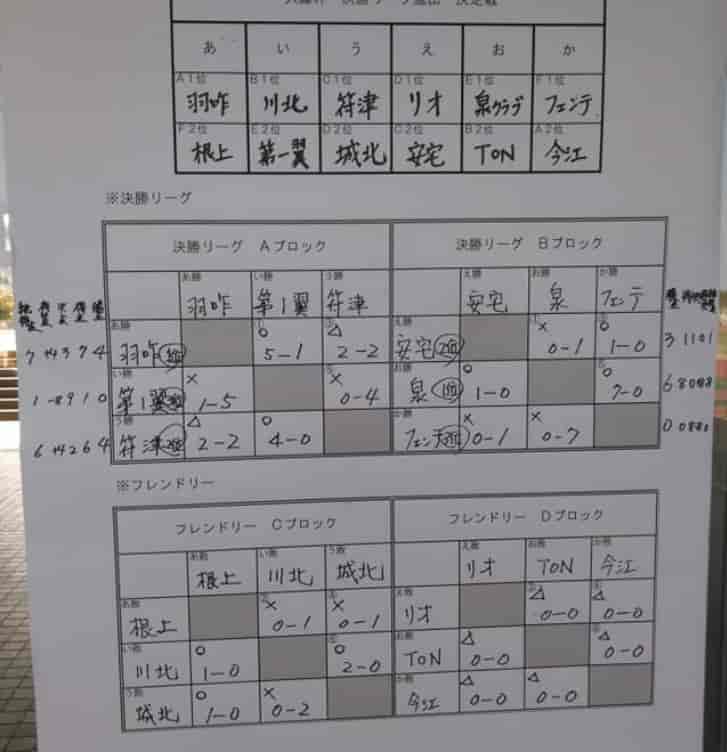 あ い う え お か
A1位 B1位 C1位 D1位 E1位 F1位
羽咋 川北 符津 リオ 泉クラブ フェンテ
F2位 E2位 D2位 C2位 B2位 A2位
根上 第一翼 城北 安宅 TON 今江
※決勝リーグ
決勝リーグ Aブロック 決勝リーグ Bブロック
あ勝 い勝 う勝 え勝 お勝 か勝
羽咋 第1翼 符津 安宅 泉 フェンテ
あ勝 ○ △ え勝 × ○
羽咋 5-1 2-2 安宅 0-1 1-0
い勝 × × お勝 ○ ○
第1翼 1-5 0-4 泉 1-0 7-0
う勝 △ ○ か勝 × ×
符津 2-2 4-0 フェンテ 0-1 0-7
※フレンドリー
フレンドリー Cブロック フレンドリー Dブロック
あ敗 い敗 う敗 え敗 お敗 か敗
根上 川北 城北 リオ TON 今江
あ敗 × × え敗 △ △
根上 0-1 0-1 リオ 0-0 0-0
い敗 ○ ○ お敗 △ △
川北 1-0 2-0 TON 0-0 0-0
う敗 ○ × か敗 △ △
城北 1-0 0-2 今江 0-0 0-0